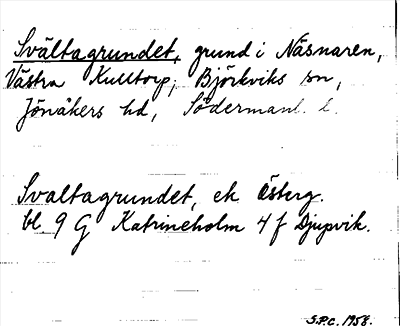 Svältagrundet, grund i Näsnaren,
Västra Kulltorp, Björkviks sn,
Jönåkers hd, Södermanl. l.
Svaltagrundet, ek Österg.
bl 9 G Katrineholm 4 f Djupvik.
S.P.C. 1958.